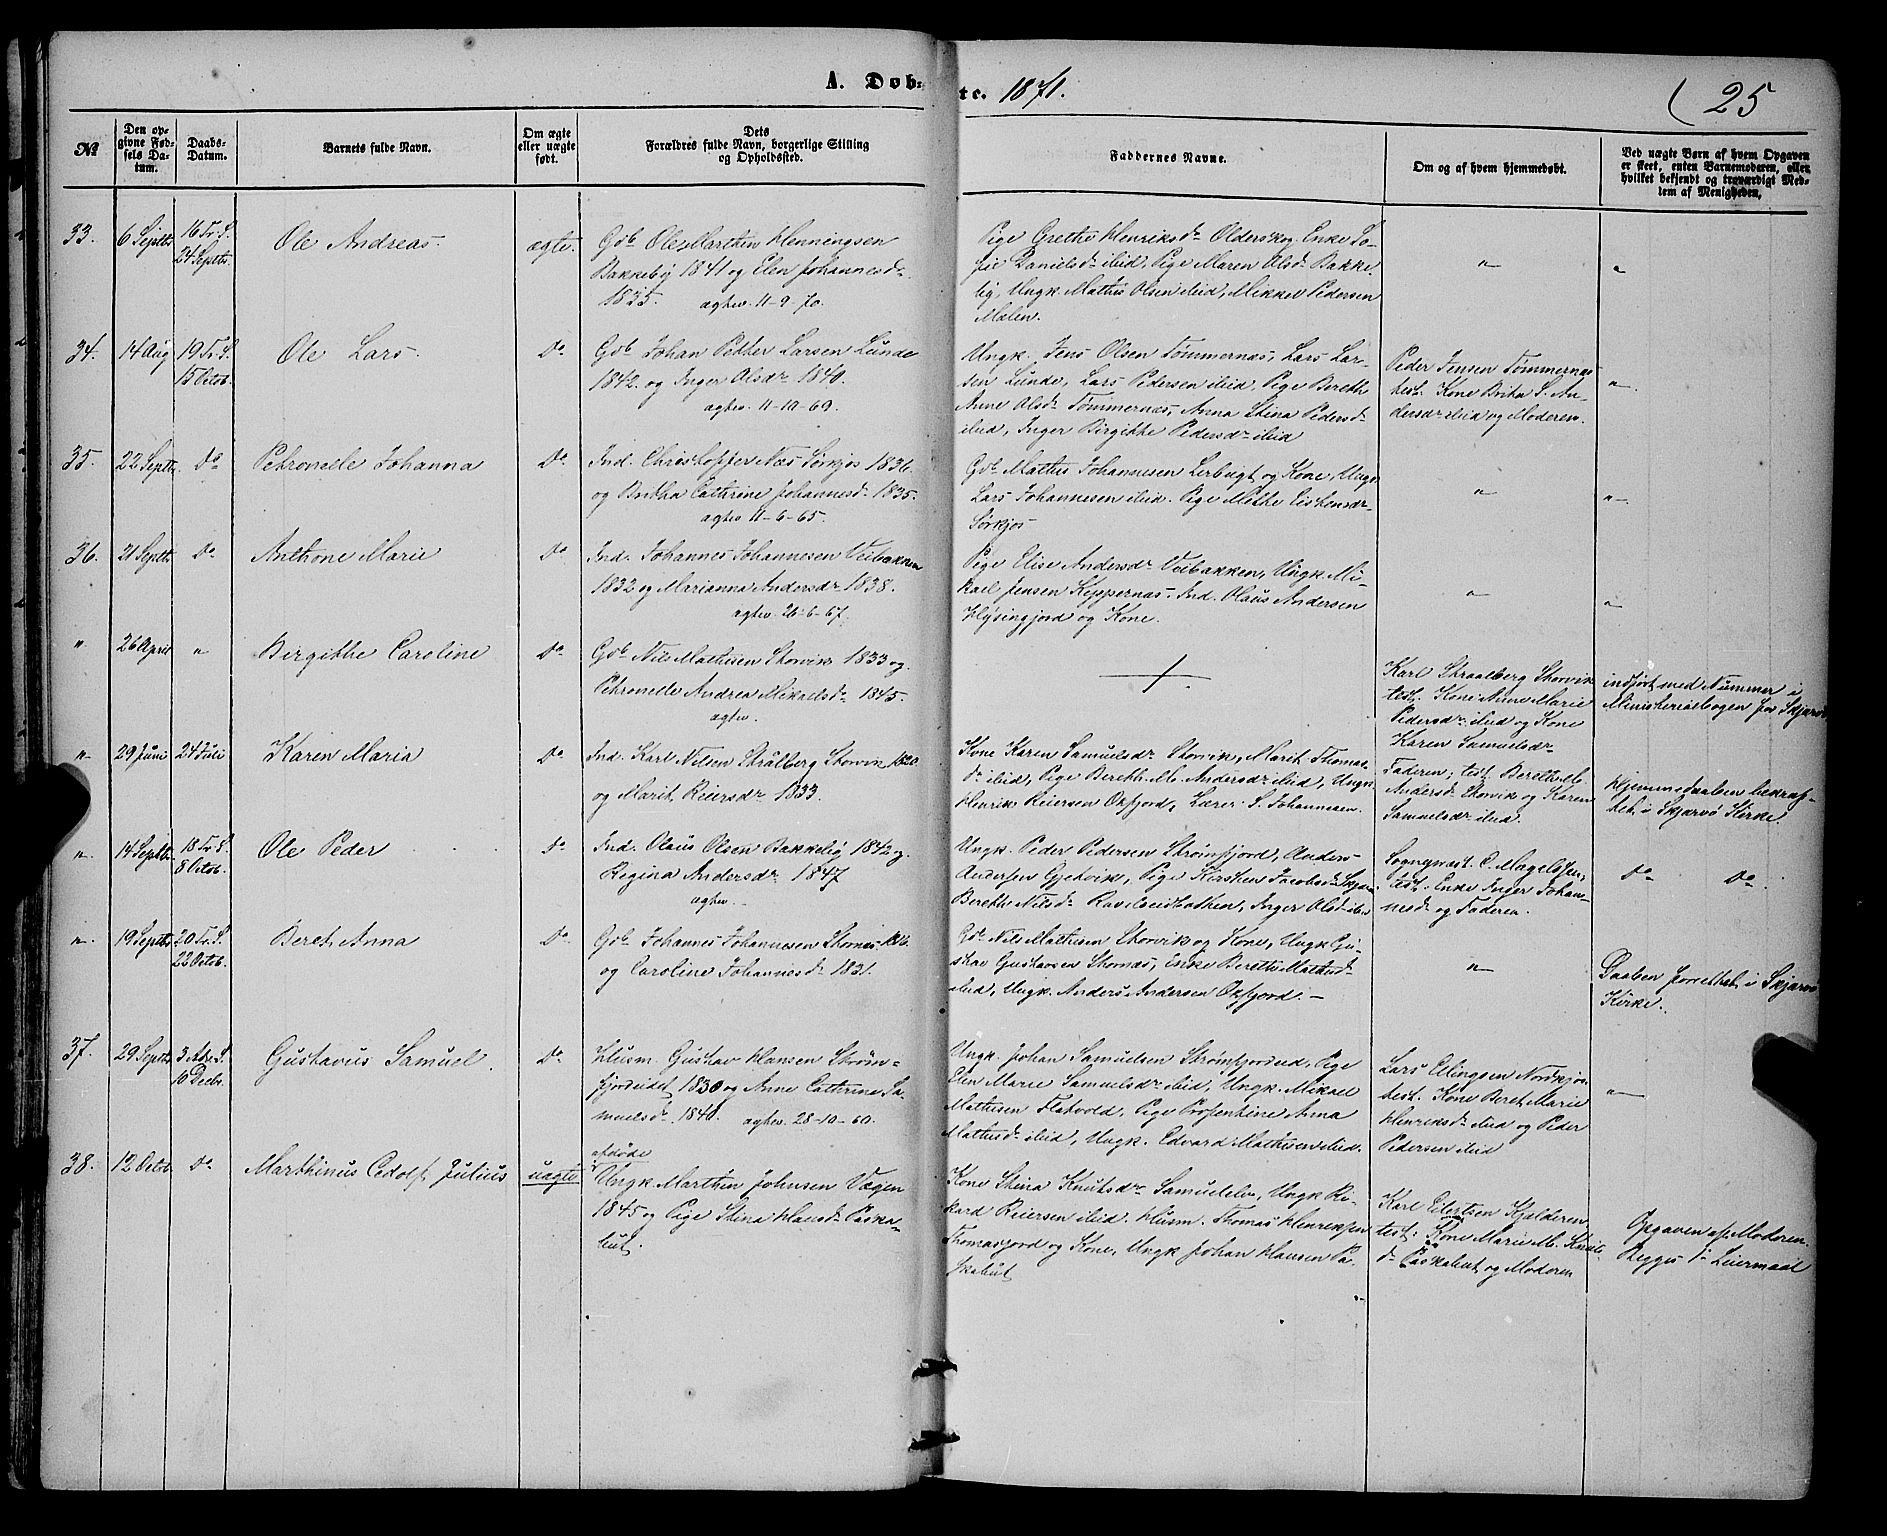 A. Døb-
te. 1871.
25
No
Den op-
givne Fød-
sels Da-
tum.
Daabs-
Datum.
Barnets fulde Navn.
Om ægte
eller uægte
født.
Dets
Forældres fulde Navn, borgerlige Stilling
og Opholdssted.
Faddernes Navne.
Om og af hvem hjemmedøbt.
Ved uægte Børn af hvem Opgaven
er skeet, enten Barnemoderen, eller
hvilket bekjendt og troværdigt Med-
lem af Menigheden.
33.
6 Septbr.
16 Tr. S.
24 Septbr.
Ole Andreas.
ægte.
Gdb. Ole Marthin Henningsen
Bakkeby 1841 og Elen Johannesdr.
1835. ægtev. 11-9-70.
Pige Grethe Henriksdr. Olderskog. Enke So-
fie Danielsdr. ibid, Pige Maren Olsdr. Bakke-
by, Ungk. Mathis Olsen ibid, Mikkel Pedersen
Malen.
"
"
34.
14 Aug
19 Tr. S.
15 Octob.
Ole Lars.
Do
Gdb. Johan Petter Larsen Lunde
1842. og Inger Olsdr. 1840.
ægtev. 11-10-69.
Ungk. Jens Olsen Tømmernæs, Lars Lar-
sen Lunde, Lars Pedersen ibid, Pige Bereth
Anne Olsdr. Tømmernæs, Anna Stina Pedersdr.
ibid, Inger Birgitte Pedersdr. ibid
Peder Jensen Tømmernæs
test. Kone Brita S. An-
dersdr. ibid og Moderen.
"
35.
22 Septbr.
Do
Petronelle Johanna
Do
Ind. Christopher Næs Sørkjos 1836.
og Britha Cathrine Johannesdr. 1835.
ægtev. 11-6-65.
Gdb. Mathis Johannesen Lerbugt og Kone, Ungk.
Lars Johannesen ibid. Pige Mathe
Sørkjos
"
"
36.
21 Septbr.
Do
Anthone Marie
Do
Ind. Johannes Johannesen Veibakken
1832 og Marianna Andersdr. 1838.
ægtev. 26-6-67.
Pige Elise Andersdr. Veibakken, Ungk. Mi-
kael Jensen Keppernæs. Ind. Olaus Andersen
Høysingjord og Kone.
"
"
"
26 April
"
Birgithe Caroline
Do
Gdb. Nils Mathisen Storvik 1833 og.
Petronelle Andrea Mikaelsdr. 1845.
ægtev.
Karl Straalberg Storvik
test. Kone Anne Marie
Pedersdr. ibid og Kone
Karen Samuelsdr.
indført med Nummer i
Ministerialbogen for Skjærvø
"
29 Juni
24 Juli
Karen Maria
Do
Ind. Karl Nilsen Strålberg Storvik
og Marit Reiersdr. 1833.
Kone Karen Samuelsdr. Storvik, Marit Thomas-
dr. ibid, Pige Bereth M. Andersdr. ibid, Ungk.
Henrik Reiersen Oxfjord, Lærer S. Johannesen.
Faderen; test. Bereth M.
Andersdr. Storvik og Karen
Samuelsdr. ibid.
Hjemmedaaben bekræf-
tet i Skjærvø Kirke.
"
14 Septbr.
18 Tr. S.
8 Octob.
Ole Peder
Do
Ind. Olaus Olsen Bakkeby 1842 og.
Regina Andersdr. 1847
ægtev.
Ungk. Peder Pedersen Strømfjord, Anders
Andersen Gjetvik, Pige Kirsten Jacobsdr.
Bereth Nilsdr. Ravelseidbotten, Inger Olsdr. ibid
Sognepræst C. Magelssen,
test. Enke Inger Johan-
nesdr. og Faderen.
Do Do
"
19 Septbr.
20 Tr. S.
22 Octob.
Beret Anna
Do.
Gdb. Johannes Johannesen Stornæs
og Caroline Johannesdr. 1831.
Gdb. Nils Mathisen Storvik og Kone, Ungk. Gu-
stav Gustavsen Stornæs, Enke Bereth Mathisdr.
ibid, Ungk. Anders Andersen Oxfjord.
"
Daaben forrettet i Skjærvø
Kirke.
37.
29 Septbr.
3 Adv. S.
10 Decbr.
Gustavus Samuel.
Do
Husm. Gustav Hansen Strøm-
fjordeidet 1830 og Anne Cathrine Sa-
muelsdr. 1840. ægtev. 28-10-60.
Ungk. Johan Samuelsen Strømfjordeid, Pige
Elen Marie Samuelsdr. ibid, Ungk. Mikael
Mathisen Flatvold, Pige Anna
Mathisdr. ibid, Ungk. Edvard Mathisen ibid.
Lars Elingsen Nordkjos
test. Kone Beret Marie
Henriksdr. ibid og Peder
Pedersen ibid
"
38.
12 Octob.
Do
Marthinus Cedolf Julius
uægte
afdøde
Ungk. Marthin Johnsen
1845 og Pige Stina Hansdr. Paska-
but.
Kone Stina Knutsdr. Samuelelv, Ungk. Ri-
kard Reiersen ibid. Husm. Thomas Henriksen
Thomasjord og Kone, Ungk. Johan Hansen Pa-
skabut
Karl Eilertsen Kjelderen
test: Kone Marie M. Knuts-
dr. Paskabut og Moderen
Opgaven af Moderen.
Begges 1ste Leiermaal